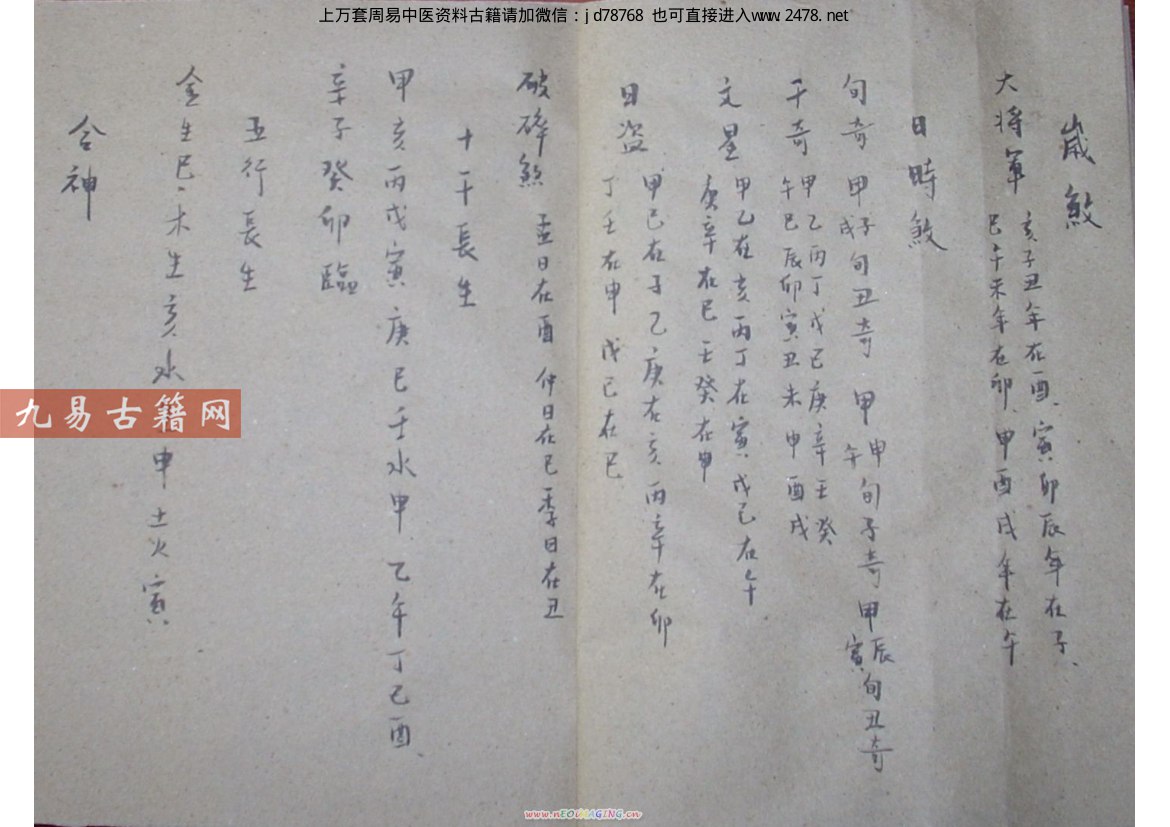 上万套周易中医资料古籍请加微信：jd78768 也可直接进入www.2478.net
歲煞
大将军
亥子丑年在酉、寅卯辰年在子、
巳午未年在卯、申酉戌年在午
日時煞
旬奇 甲子旬丑奇 甲申旬子奇 甲辰旬丑奇
戌 午 寅
干奇 甲乙丙丁戊己庚辛壬癸
午巳辰卯寅丑未申酉戌
文星 甲乙在亥丙丁在寅戊己在午
庚辛在巳壬癸在申
日盗 甲己在子乙庚在亥丙辛在卯
丁壬在申 戊己在巳
破碎煞 孟日在酉 仲日在巳季日在丑
十干長生
甲亥丙戊寅庚巳壬水申 乙午丁己酉、
辛子癸卯臨
五行長生
金生巳、木生亥水 申土火寅
合神
九易古籍网
www.nEOiMAGING.cn